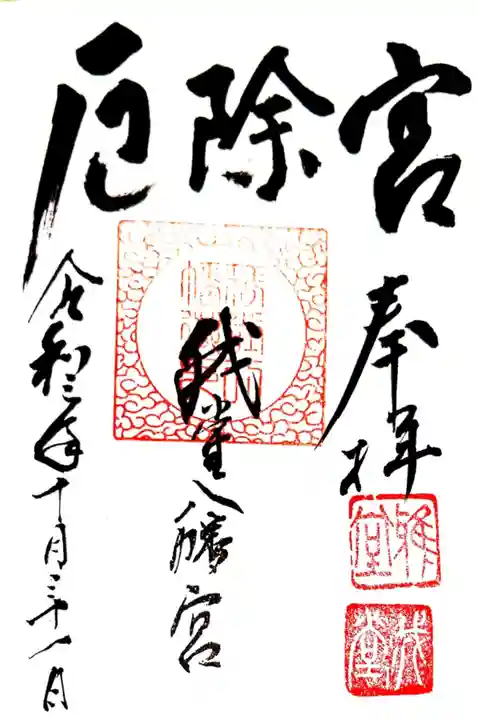 厄除宮
奉拝
我堂八幡宮
令和二年十月三十一日